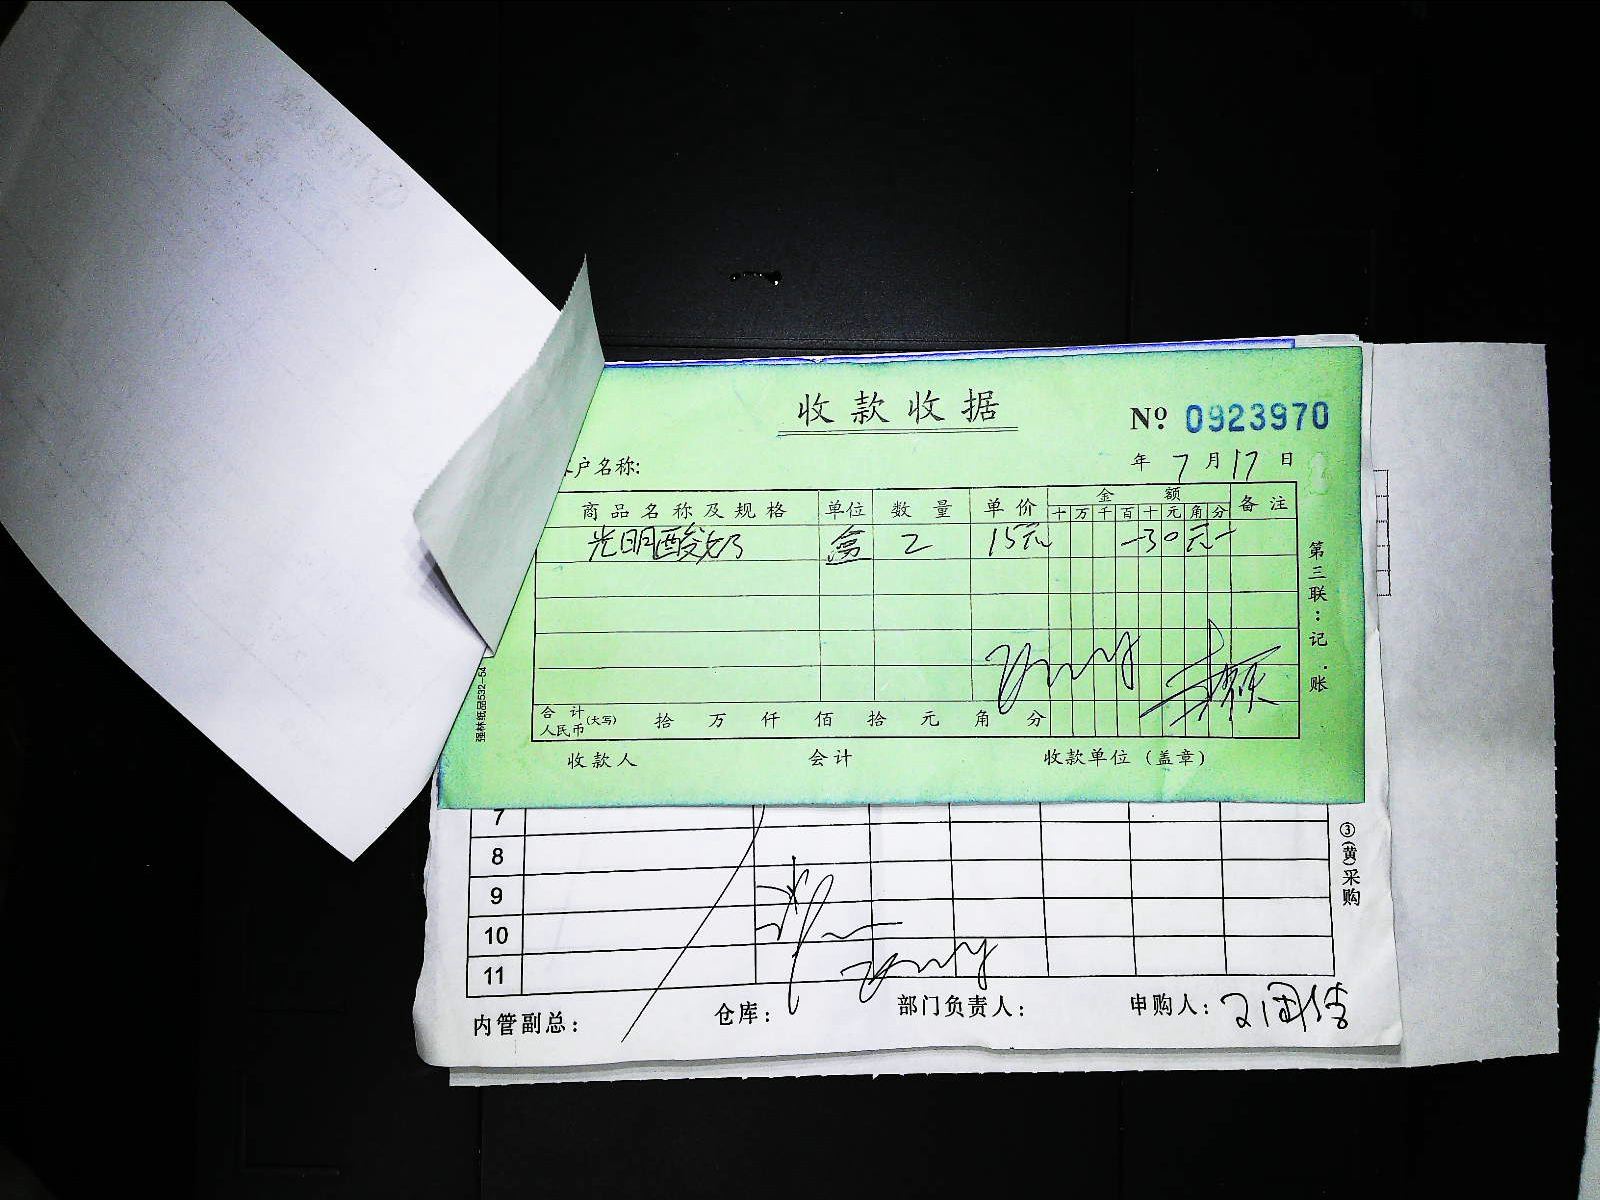 收款收据
№ 0923970
户名称:
年 7 月 17 日
商品名称及规格 单位 数量 单价 金额 备注
十 万 千 百 十 元 角 分
光明酸奶 盒 2 15元 -30元-
第三联:记账
合计人民币(大写) 拾 万 仟 佰 拾 元 角 分
收款人 会计 收款单位(盖章)
强林纸品532-54
7
8
9
10
11
③(黄)采购
内管副总: 仓库: 部门负责人: 申购人: